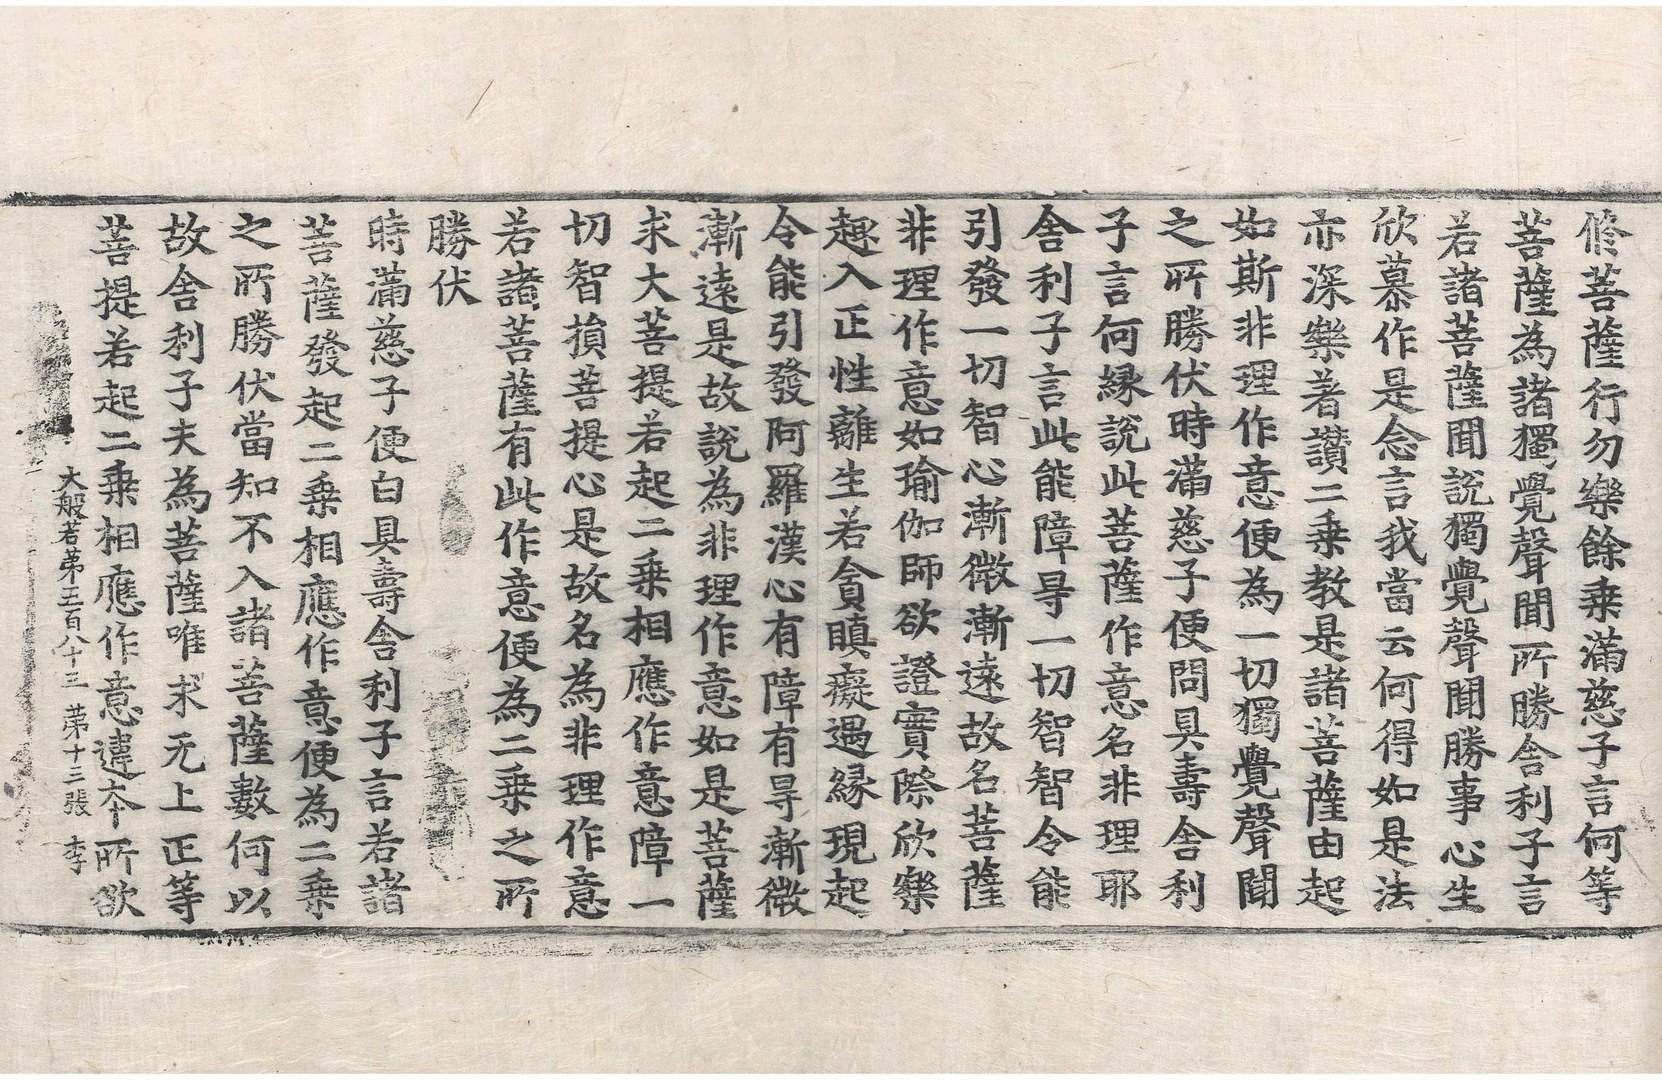 修菩薩行勿樂餘乗滿慈子言何等
菩薩為諸獨覺聲聞所勝舍利子言
若諸菩薩聞說獨覺聲聞勝事心生
欣慕作是念言我當云何得如是法
亦深樂著讃二乗教是諸菩薩由起
如斯非理作意便為一切獨覺聲聞
之所勝伏時滿慈子便問具壽舍利
子言何縁說此菩薩作意名非理耶
舍利子言此能障㝵一切智智令能
引發一切智心漸微漸遠故名菩薩
非理作意如瑜伽師欲證實際欣樂
趣入正性離生若貪瞋癡遇縁現起
令能引發阿羅漢心有障有㝵漸微
漸遠是故說為非理作意如是菩薩
求大菩提若起二乗相應作意障一
切智智損菩提心是故名為非理作意
若諸菩薩有此作意便為二乗之所
勝伏
時滿慈子便白具壽舍利子言若諸
菩薩發起二乗相應作意便為二乗
之所勝伏當知不入諸菩薩數何以
故舍利子夫為菩薩唯求无上正等
菩提若起二乗相應作意違本所欲
大般若第五百八十三 第十三張 李